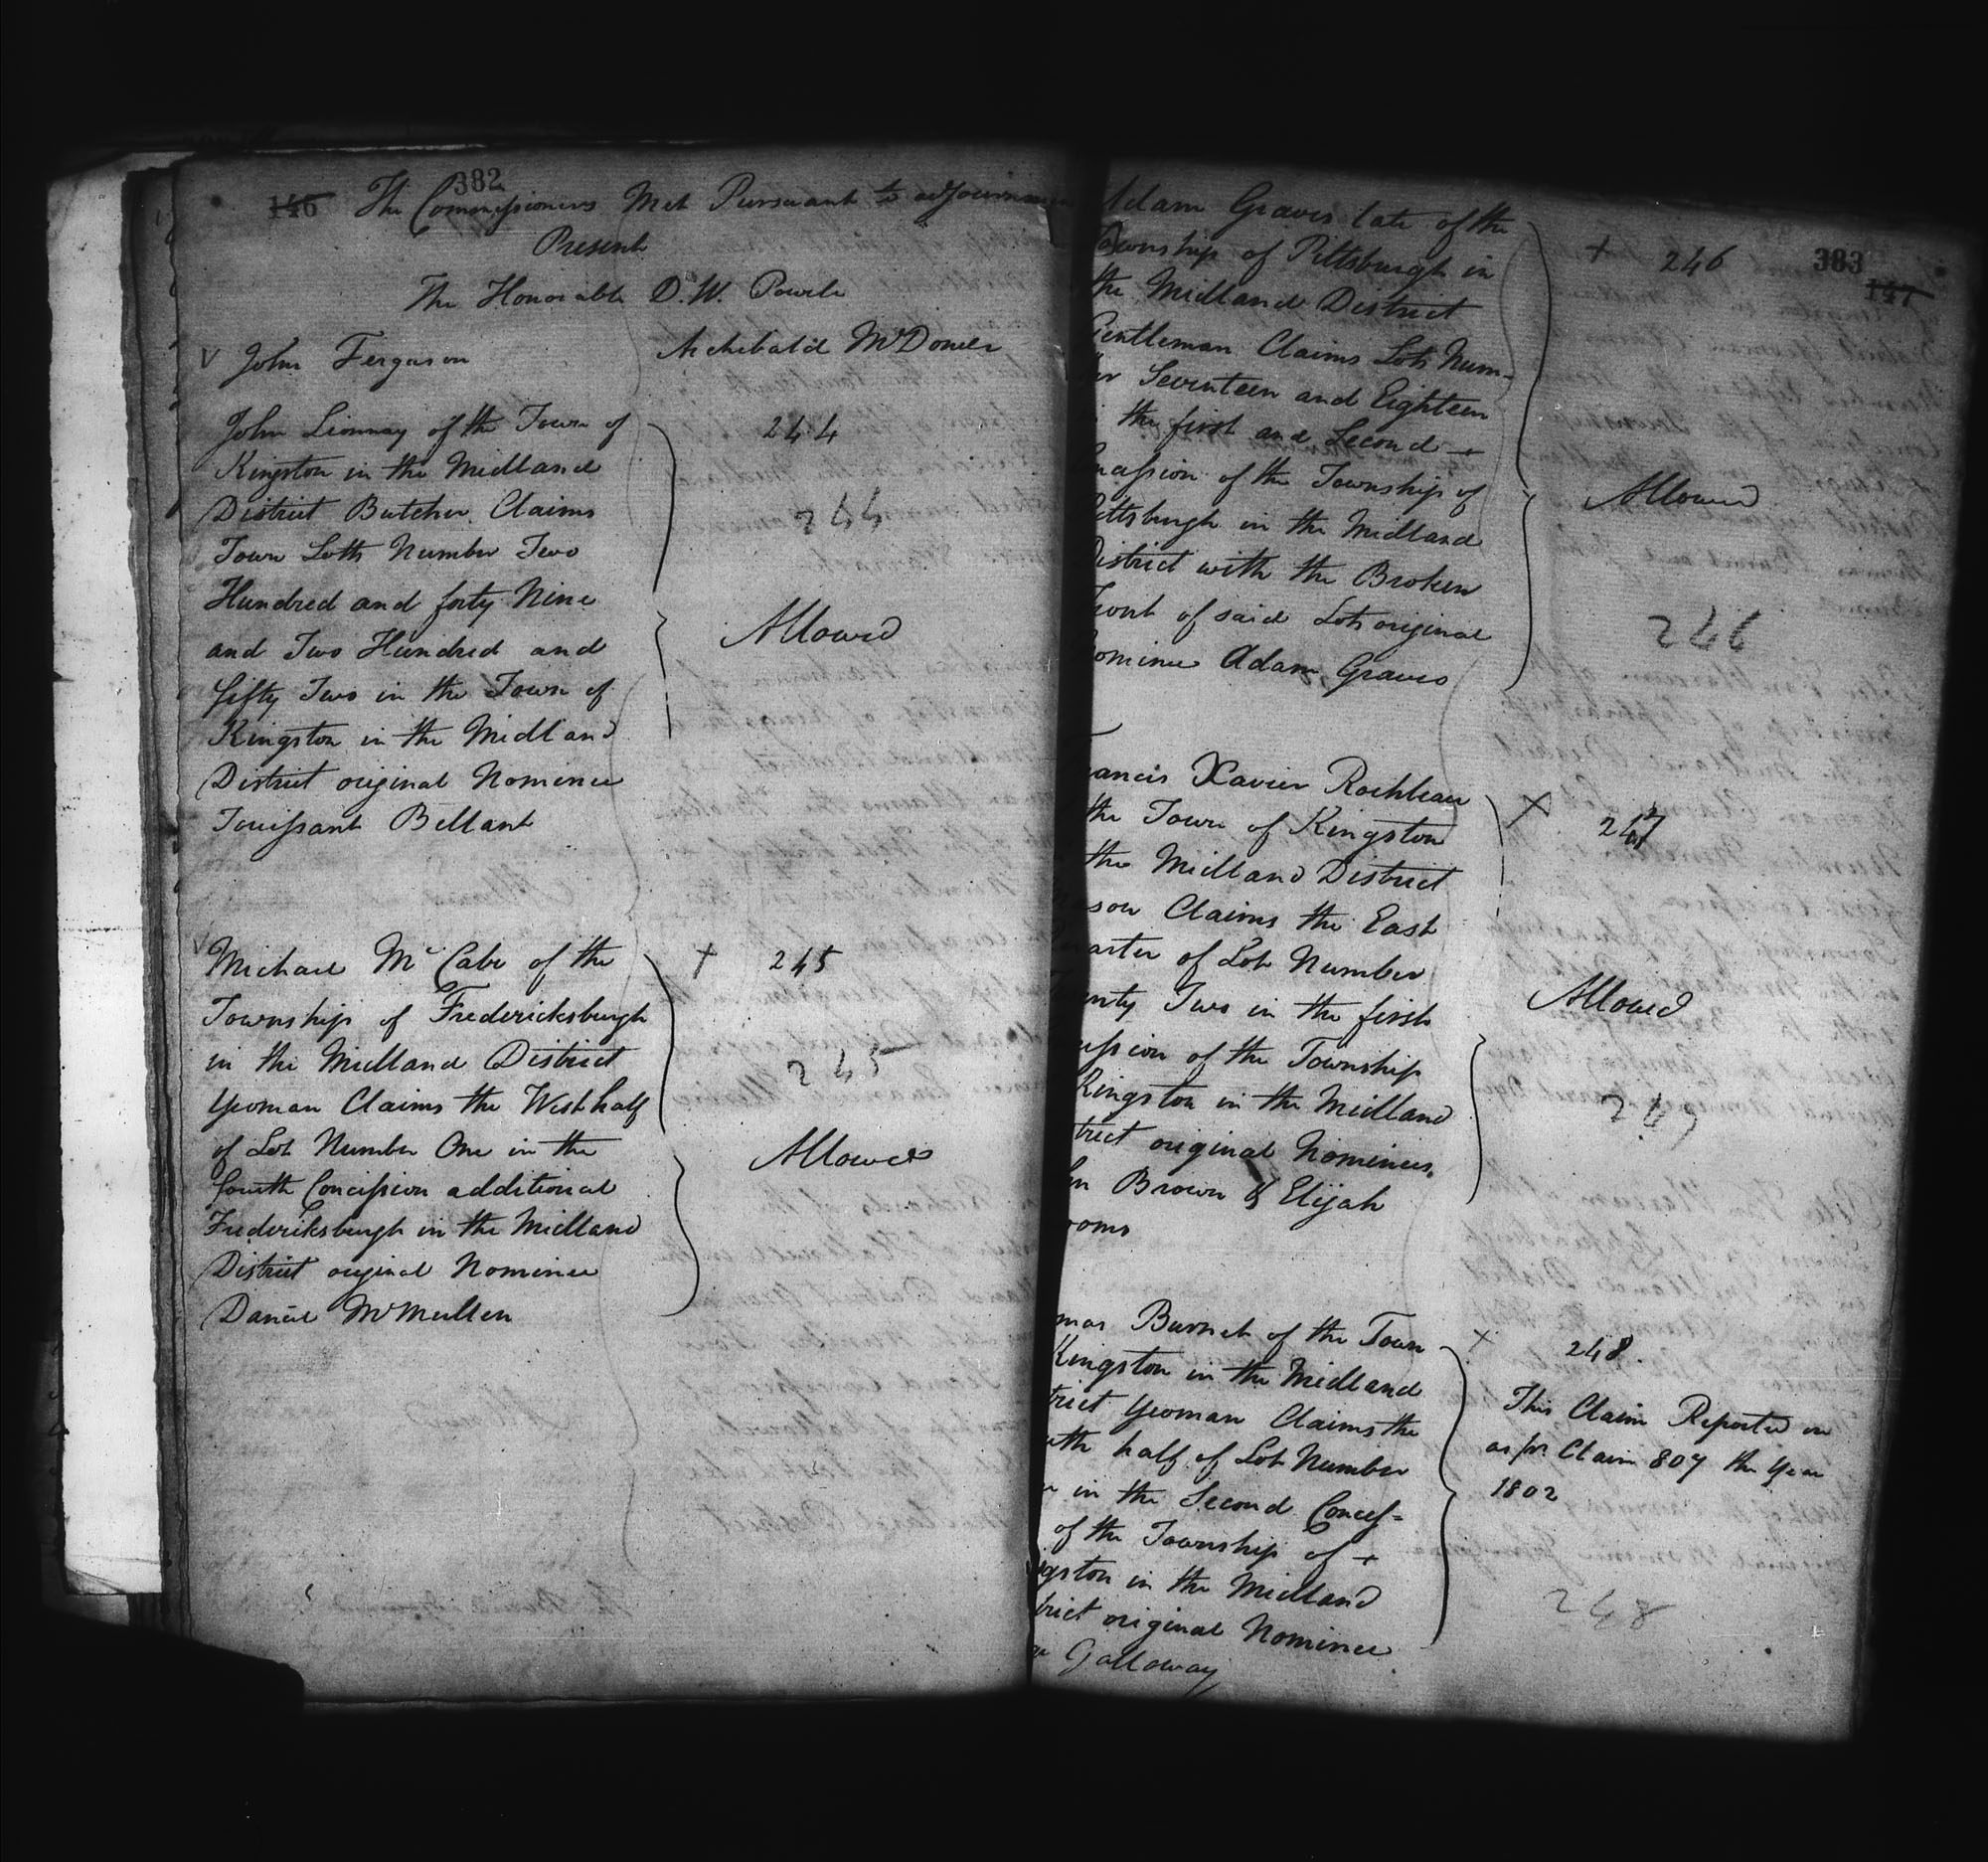 382
146 The Commissioners Met Pursuant to adjournment
Present
The Honorable D. W. Powele
John Ferguson Archibald McDonell
John Linnnay of the Town of
Kingston in the Midland
District Butcher Claims
Town Lotts Number Two
Hundred and forty Nine
and Two Hundred and
fifty Two in the Town of
Kingston in the Midland
District original Nominee
Touissant Bellant
244
244
Allowed
Michael McCabe of the
Township of Fredericksburgh
in the Midland District
Yeoman Claims the West half
of Lot Number One in the
fourth Concission additional
Frederiksburgh in the Midland
District original Nominee
Daniel McMullen
+ 245
245
Allowed
383
147
Adam Graves late of the
Township of Pittsburgh in
the Midland District
Gentleman Claims Lots Num-
ber Seventeen and Eighteen
the first and Second +
ncession of the Township of
ittsburgh in the Midland
District with the Broken
front of said Lots original
ominee Adam Graves
+ 246
Allowed
246
ancis Xavier Rochleau
the Town of Kingston
the Midland District
son Claims the East
uarter of Lot Number
enty Two in the first
ession of the Township
Kingston in the Midland
trict original Nominees,
hn Brown & Elijah
ooms
+ 247
Allowed
247
mas Burnet of the Town
Kingston in the Midland
trict Yeoman Claims the
uth half of Lot Number
in the Second Conces=
of the Township of +
gston in the Midland
trict original Nominee
Galloway
+ 248.
This Claim Reported on
as pr. Claim 809 the Year
1802
248